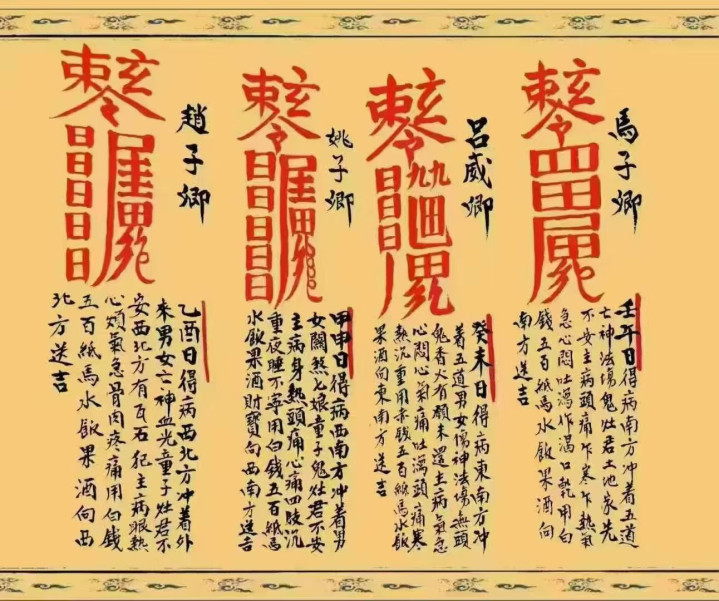 馬子卿
壬午日得病南方冲着五道
亡神法場鬼灶君土地家先
不安主病頭痛乍寒乍熱氣
急心悶吐瀉乍渴口乾用白
錢五百紙馬水飯果酒向
南方送吉
呂威卿
癸未日得病東南方冲
着五道男女傷神法場無頭
鬼香火有願未還主病氣急
心悶心氣痛吐瀉頭痛寒
熱沉重用赤錢五百紙馬水飯
果酒向東南方送吉
姚子卿
甲申日得病西南方冲着男
女關煞七娘童子鬼灶君不安
主病身熱頭痛心痛四肢沉
重夜睡不寧用白錢五百紙馬
水飯果酒財寶向西南方送吉
趙子卿
乙酉日得病西北方冲着外
來男女亡神血光童子灶君不
安西北方有瓦石犯主病眼熱
心煩氣急骨肉疼痛用白錢
五百紙馬水飯果酒向西
北方送吉